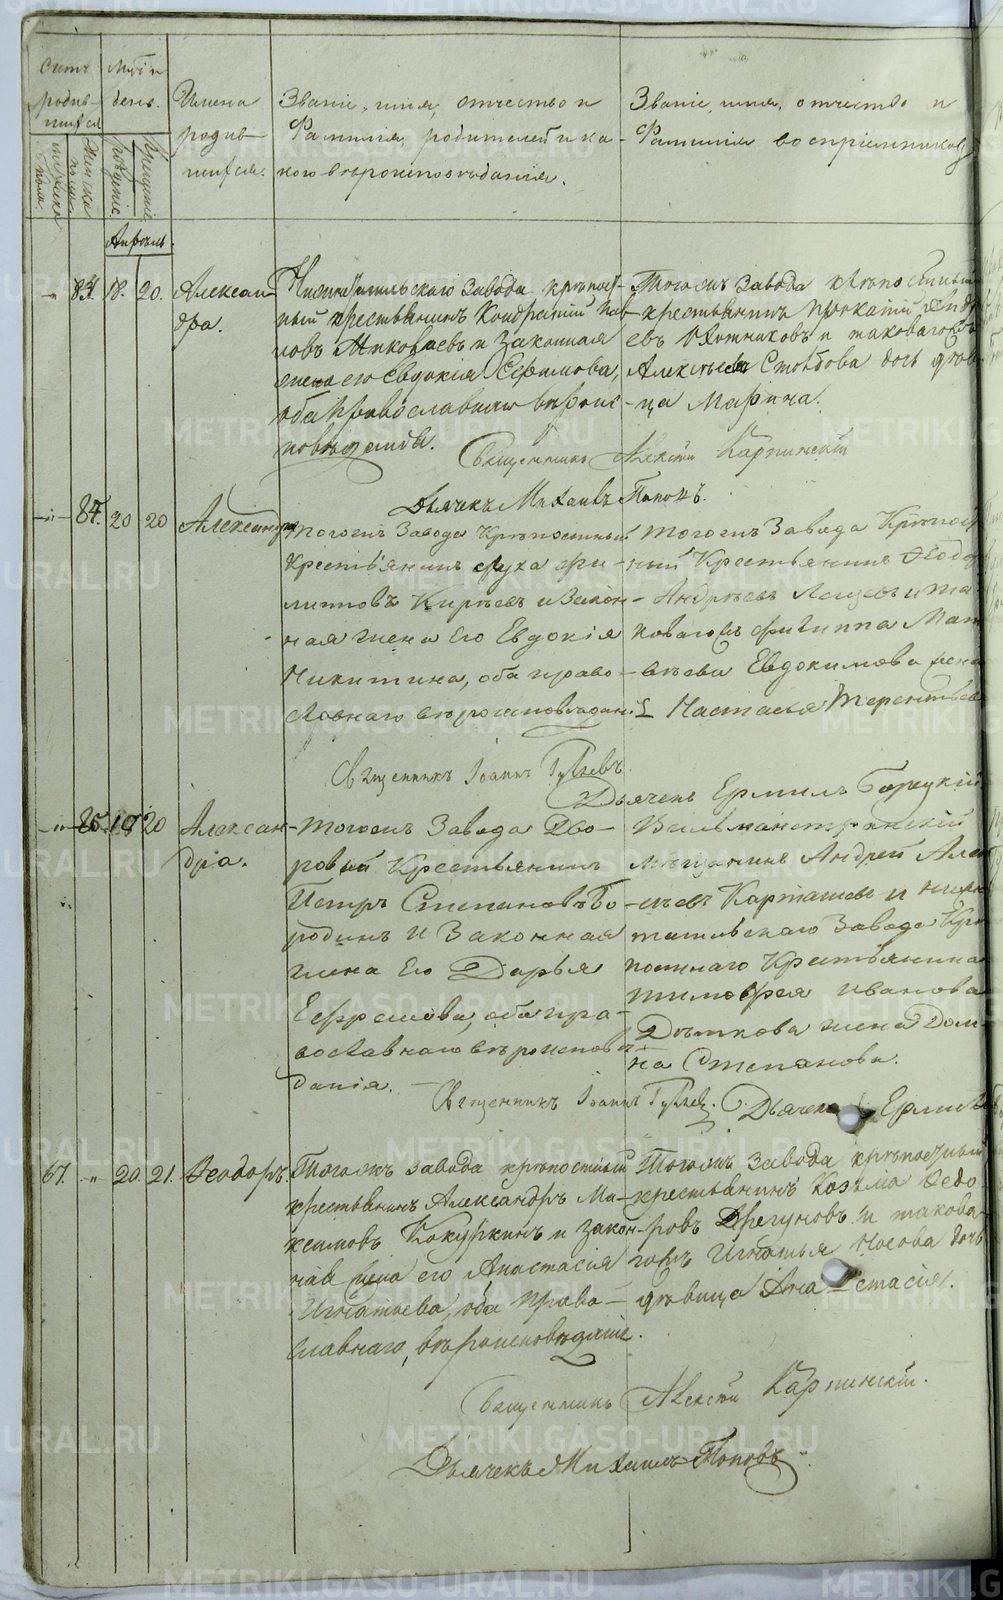 Счетъ родив-шихся
Мужеска пола.
Женска пола
Мѣс. и день.
рожденіе.
Крещеніе
Имена родив-шихся.
Званіе, имя, отчество и
Фамилія, родителей и ка-
кого вѣроисповѣданія.
Званіе, имя, отчество и
Фамилія воспріемниковъ
Апрѣль.
84. 18. 20.
Алексан-
дра.
Нижнетагильскаго Завода крѣпост-
ный крестьянинъ Кондратий
Миколаевъ и Законная
жена его Евдокія Ефимова,
оба Православнаго вѣроис-
повѣданія.
Тогожъ Завода крѣпостный
крестьянинъ Прокатій
евъ Охотниковъ и таковагожъ
Алексѣева Столбова дочь дѣви-
ца Марина.
Священникъ Алексѣй Карпинскій
Дьячекъ Михаилъ Поповъ.
85. 20 20
Александра
Тогожъ Завода Крѣпостный
Крестьянинъ Фи-
липповъ Кирѣевъ и Закон-
ная жена Его Евдокія
Никитина, оба право-
славнаго вѣроисповѣданія
Тогожъ Завода Крѣпост-
ный Крестьянинъ Ѳеодоръ
Андрѣевъ и та-
ковагожъ Филиппа Мат-
вѣева Евдокимова жена
Настасья Терентьева
Священникъ Іоаннъ
Дьячекъ Ермилъ Борецкій
86. 19 20
Алексан-
дра.
Тогожъ Завода Дво-
ровый Крестьянинъ
Петръ Степановъ Бо-
родинъ и Законная
жена Его Дарья
Ефремова, оба пра-
вославнаго вѣроисповѣ-
данія.
Вильманстрандскій
мѣщанинъ Андрей Алек-
сѣевъ Карташевъ и Нижне-
тагильскаго Завода Крѣ-
постнаго Крестьянина
Тимофея Иванова
Дѣткова жена Дом-
на Степанова.
Священникъ Іоаннъ
Дьячекъ Ермилъ
67. 20. 21.
Ѳеодоръ.
Тогожъ завода крѣпостный
крестьянинъ Александръ Ма-
ксимовъ Кокушкинъ и закон-
ная жена его Анастасія
Игнатьева, оба право-
славнаго, вѣроисповѣданія.
Тогожъ Завода крѣпостный
крестьянинъ Козьма Ѳедо-
ровъ Дрегуновъ и такова-
гожъ Игнатья Носова дочь
дѣвица Анастасія.
Священникъ Алексѣй Карпинскій.
Дьячекъ Михаилъ Поповъ
METRIKI.GASO-URAL.RU